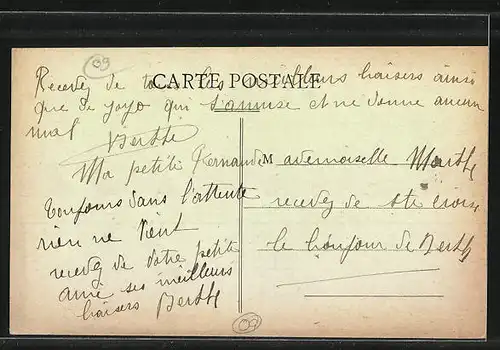 09
CARTE POSTALE
Recevez de tous les meilleurs baisers ainsi
que de yoyo qui s'amuse et ne donne aucun
mal
Berthe
Ma petite Fernande
Toujours dans l'attente
rien ne vient
recevez de votre petite
amie ses meilleurs
baisers Berthe
Mademoiselle Marthe
recevez de ste croix
le bonjour de Berthe
09